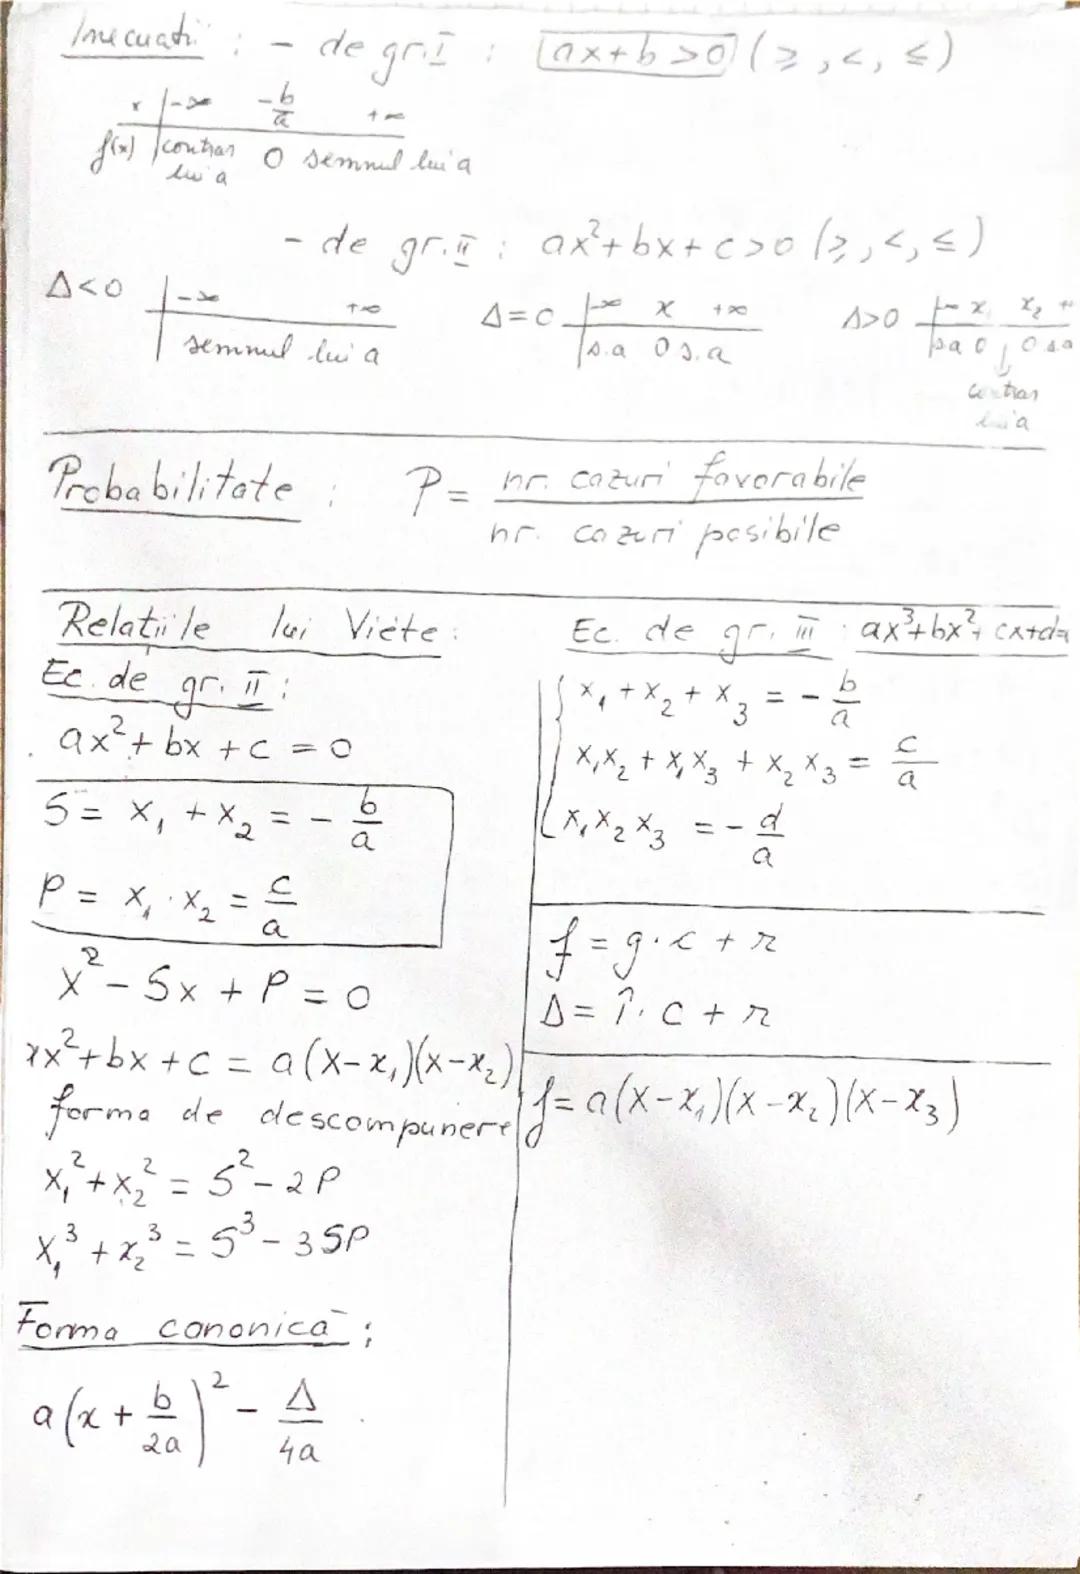 Inecuatii : - de gr. I : ax+b>0 (≥, <, ≤)
x | -∞ -b/a +∞
f(x) | contrar lui a 0 semnul lui a
- de gr. II : ax²+bx+c>0 (≥, <, ≤)
Δ<0 | -∞ +∞
semnul lui a
Δ=0 | -∞ x +∞
s.a 0 s.a
Δ>0 | -∞ x₁ x₂ +
s.a 0 ↓ 0 s.a
contrar
lui a
Probabilitate : P = nr. cazuri favorabile
nr. cazuri posibile
Relatiile lui Viète :
Ec. de gr. II :
ax² + bx + c = 0
S = x₁ + x₂ = - b/a
P = x₁ · x₂ = c/a
x² - Sx + P = 0
ax²+bx+c = a(x-x₁)(x-x₂)
forma de descompunere
x₁² + x₂² = S² - 2P
x₁³ + x₂³ = S³ - 3SP
Forma canonică :
a(x + b/2a)² - Δ/4a
Ec. de gr. III : ax³+bx²+cx+d=
x₁ + x₂ + x₃ = - b/a
x₁x₂ + x₁x₃ + x₂x₃ = c/a
x₁x₂x₃ = - d/a
f = g·c + r
Δ = Î·c + r
f = a(x-x₁)(x-x₂)(x-x₃)